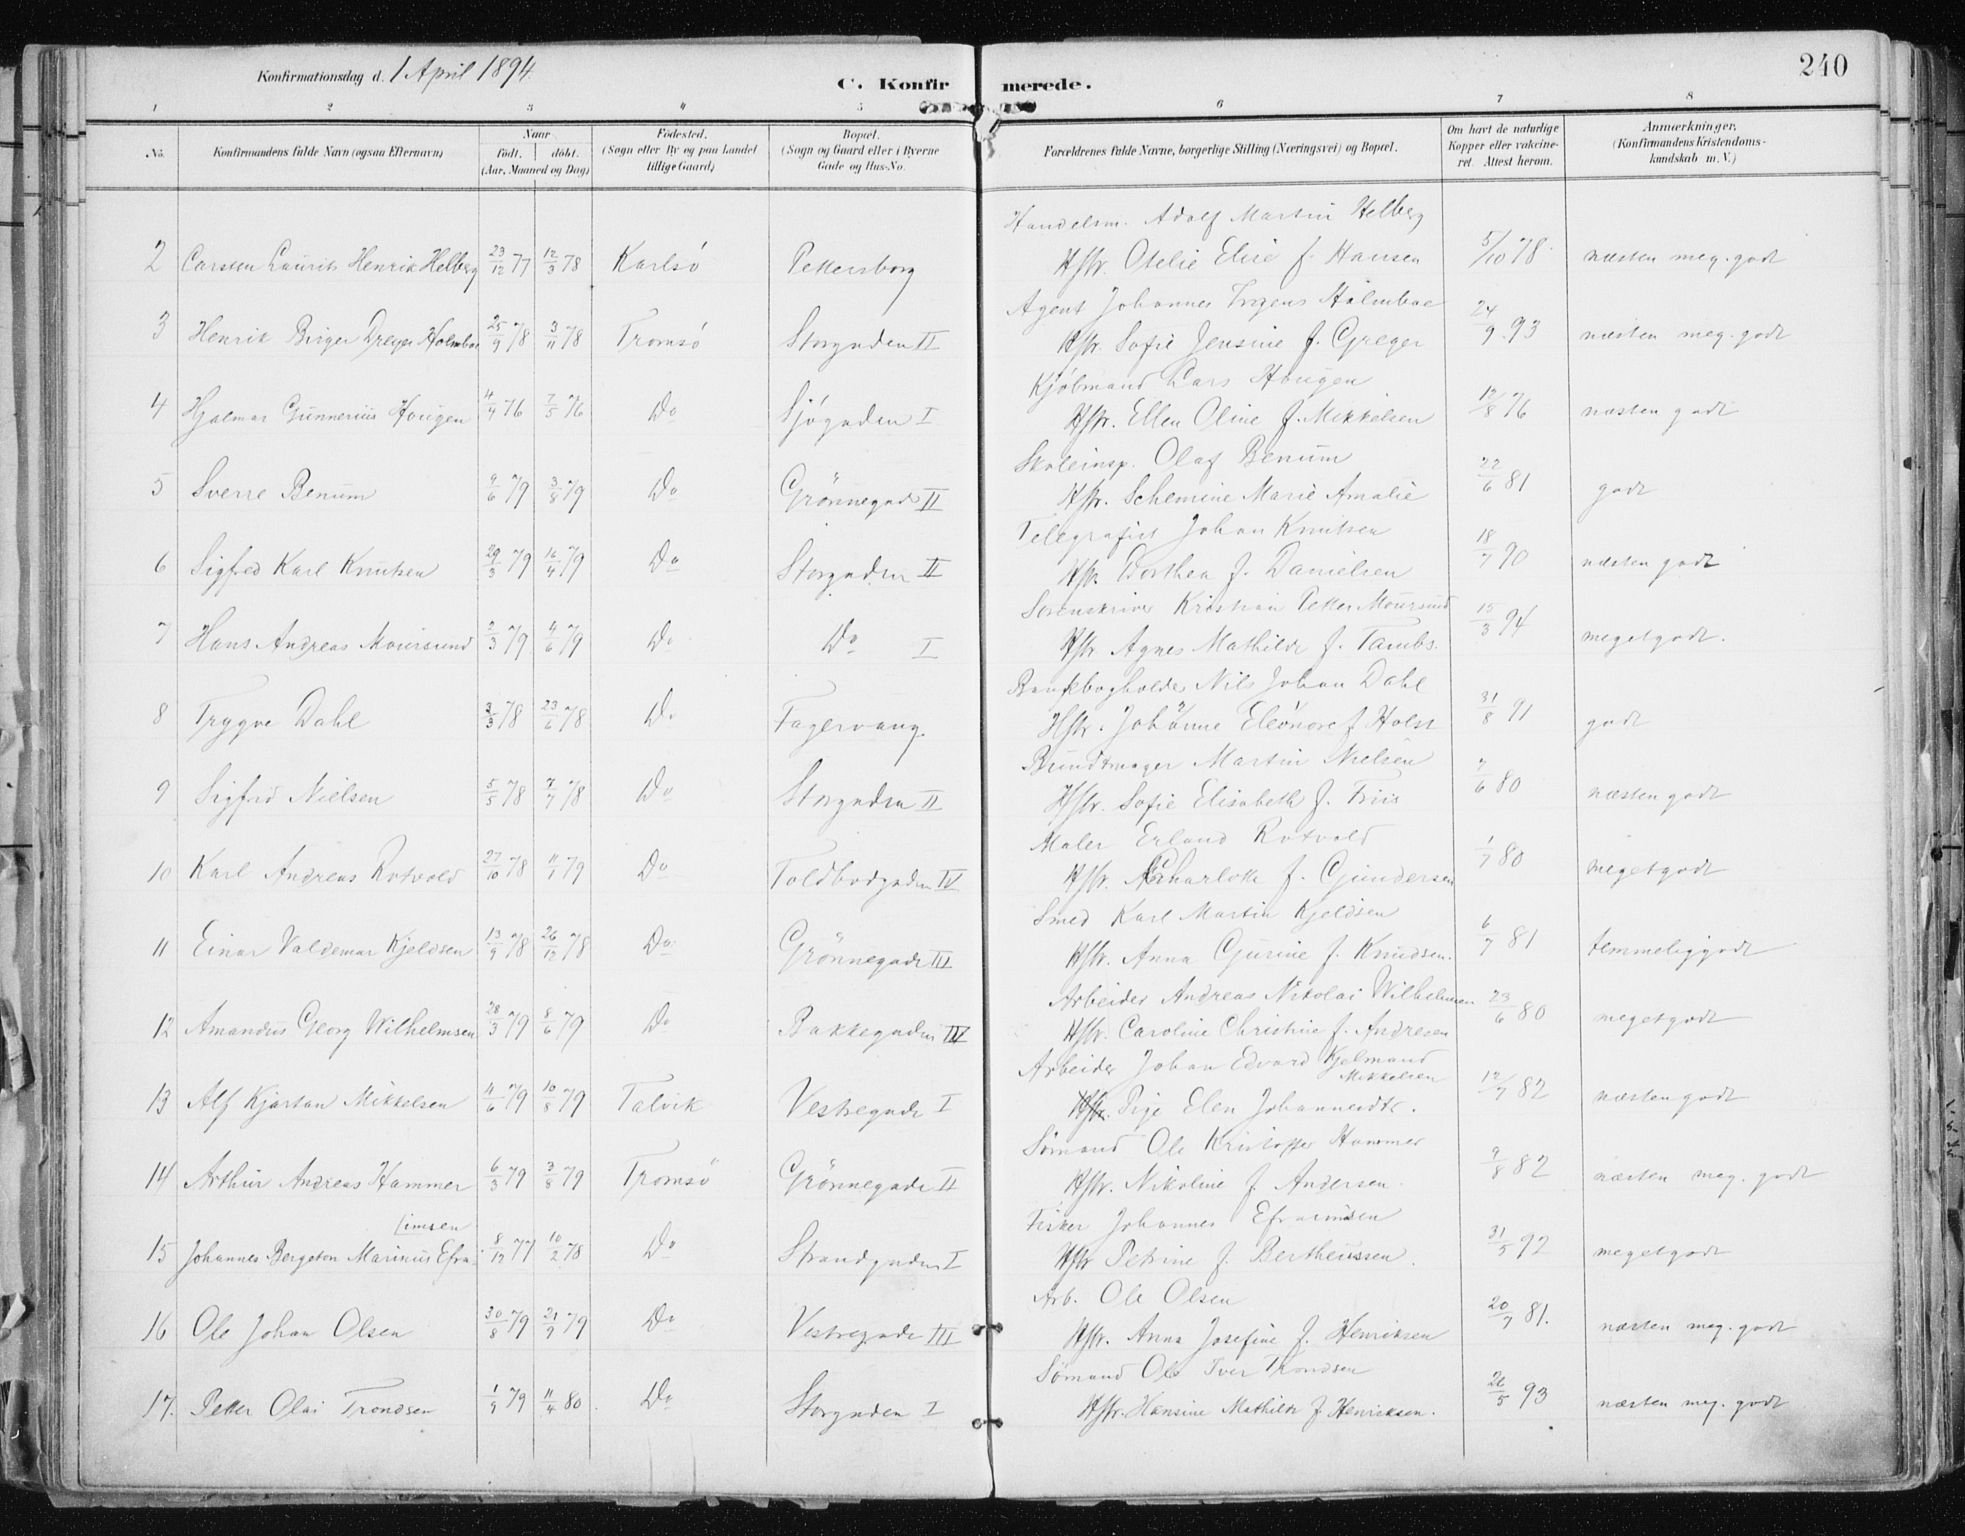 Konfirmationsdag d. 1 April 1894. C. Konfirmerede. 240
1 2 3 4 5 6 7 8
No. Konfirmandens fulde Navn (ogsaa Efternavn) Naar født. døbt. (Aar, Maaned og Dag) Fødested. (Sogn eller By og paa Landet tillige Gaard) Bopæl. (Sogn og Gaard eller i Byerne Gade og Hus-No. Forældrenes fulde Navne, borgerlige Stilling (Næringsvei) og Bopæl. Om havt de naturlige Kopper eller vaccineret. Attest herom. Anmærkninger. (Konfirmandens Kristendomskundskab m. V.)
Handelsm. Adolf Martin Helberg
2 Carsten Laurits Henrik Helberg 23/12 77 12/3 78 Karlsö Pettersborg Hstr. Otelie Elise f. Hansen 5/10 78 næsten meg. godt
Agent Johannes Holmboe
3 Henrik Birger Dreyer Holmboe 25/9 78 3/11 78 Tromsö Storgaden II Hstr. Sofie Jensine f. Greger 24/9 93 næsten meg. godt
Kjöbmand Lars Hougen
4 Hjalmar Gunnerius Hougen 4/4 76 7/5 76 Do Sjögaden I Hstr. Ellen Oline f. Mikkelsen 12/8 76 næsten godt
Skoleinsp. Olaf Benum
5 Sverre Benum 9/6 79 3/8 79 Do Grönnegade II Hstr. Schemine Marie Amalie 22/6 81 godt
Telegrafist Johan Knutsen
6 Sigfred Karl Knutsen 29/3 79 16/4 79 Do Storgaden II Hstr. Dorthea f. Danielsen 18/7 90 næsten godt
Sorenskriver Kristian Petter Moursund
7 Hans Andreas Moursund 2/3 79 4/6 79 Do Do I Hstr Agnes Mathilde f. Tambs. 15/3 94 megetgodt.
Bankbogholder Nils Johan Dahl
8 Trygve Dahl 3/3 78 23/6 78 Do Fagervang. Hstr. Johanne Eleonore f Holst 31/8 91 godt
Bundtmager Martin Nielsen
9 Sigfrid Nielsen 5/5 78 7/7 78 Do Storgaden II Hstr. Sofie Elisabeth f. Friis 7/6 80 næsten godt
Maler Erland Rotvold
10 Karl Andreas Rotvold 27/10 78 11/7 79 Do Toldbodgaden IV Hstr. Charlotte f. Gundersen 1/7 80 megetgodt
Smed Karl Martin Kjeldsen
11 Einar Valdemar Kjeldsen 13/9 78 26/12 78 Do Grönnegade III Hstr. Anna Gurine f. Knudsen. 6/7 81 temmeliggodt
Arbeider Andreas Nikolai Wilhelmsen
12 Amandus Georg Wilhelmsen 28/3 79 8/6 79 Do Bakkegaden Hstr. Caroline Christine f. Andresen 23/6 80 megetgodt
Arbeider Johan Edvard Kjelmand
Mikkelsen
13 Alf Kjartan Mikkelsen 4/6 79 10/8 79 Talvik Vestregade I Hstr. Pige Elen Johannesdtr. 12/7 82 næsten godt
Sömand Ole Kristoffer Hammer
14 Arthur Andreas Hammer 6/3 79 3/8 79 Tromsö Grönnegade II Hstr. Nikoline f. Andersen. 9/8 82 næsten meg. godt
[imsen Fisker Johannes Efraimsen
15 Johannes Bergeton Marinius Efra- 8/12 77 10/2 78 Do Strandgaden I Hstr Petrine f. Bertheussen. 31/5 92 megetgodt
Arb. Ole Olsen
16 Ole Johan Olsen 30/8 79 21/9 79 Do Vestregade III Hstr. Anna Josefine f. Henriksen 20/7 81. næsten meg. godt
Sömand Ole Iver Trondsen
17. Petter Olai Trondsen 1/9 79 11/4 80. Do Storgaden I Hstr. Hansine Mathilde f. Henriksen. 26/5 93 næsten meg. godt